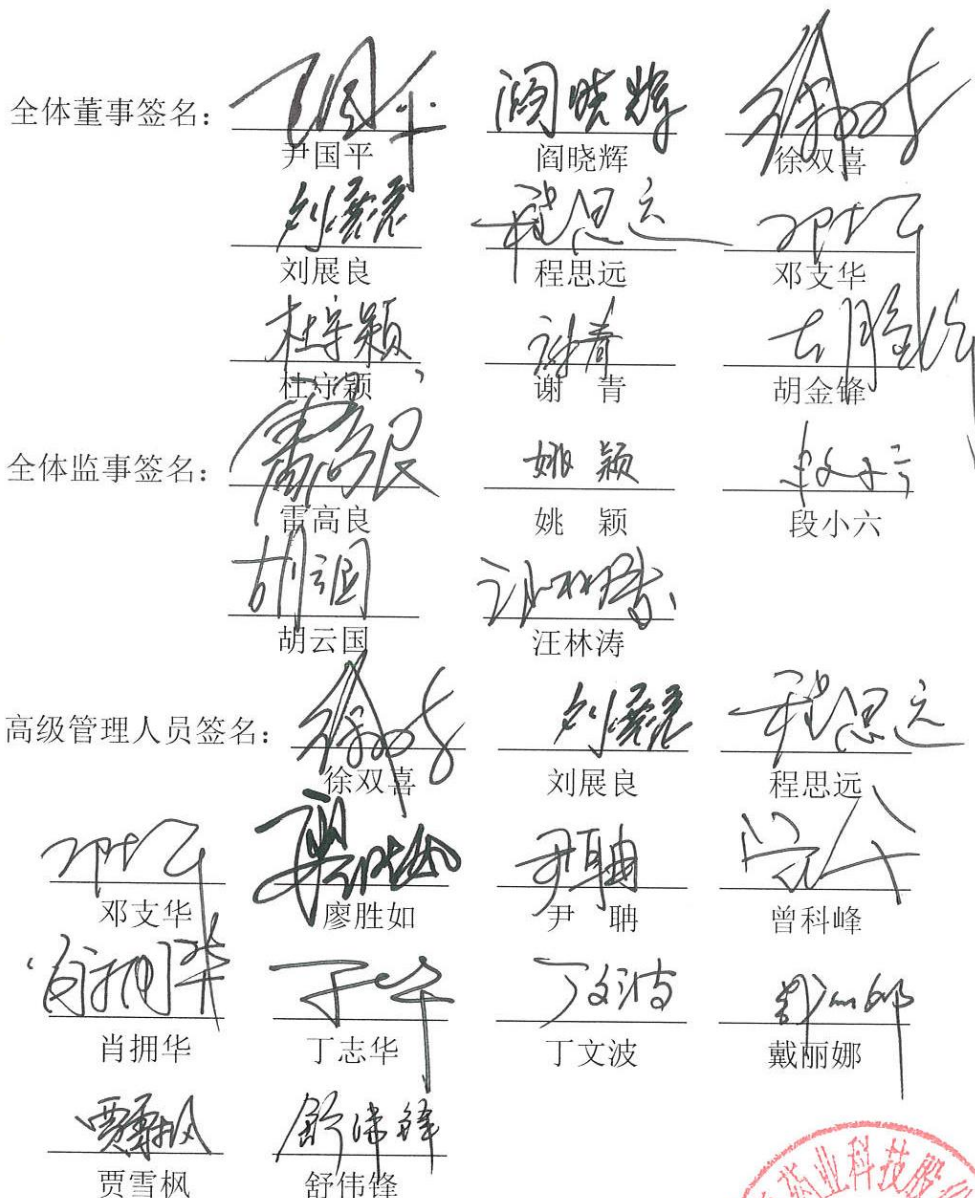 全体董事签名：
尹国平 阎晓辉 徐双喜
刘展良 程思远 邓支华
杜守颖 谢 青 胡金锋
全体监事签名：
雷高良 姚 颖 段小六
胡云国 汪林涛
高级管理人员签名：
徐双喜 刘展良 程思远
邓支华 廖胜如 尹 聃 曾科峰
肖拥华 丁志华 丁文波 戴丽娜
贾雪枫 舒伟锋
药业科技股